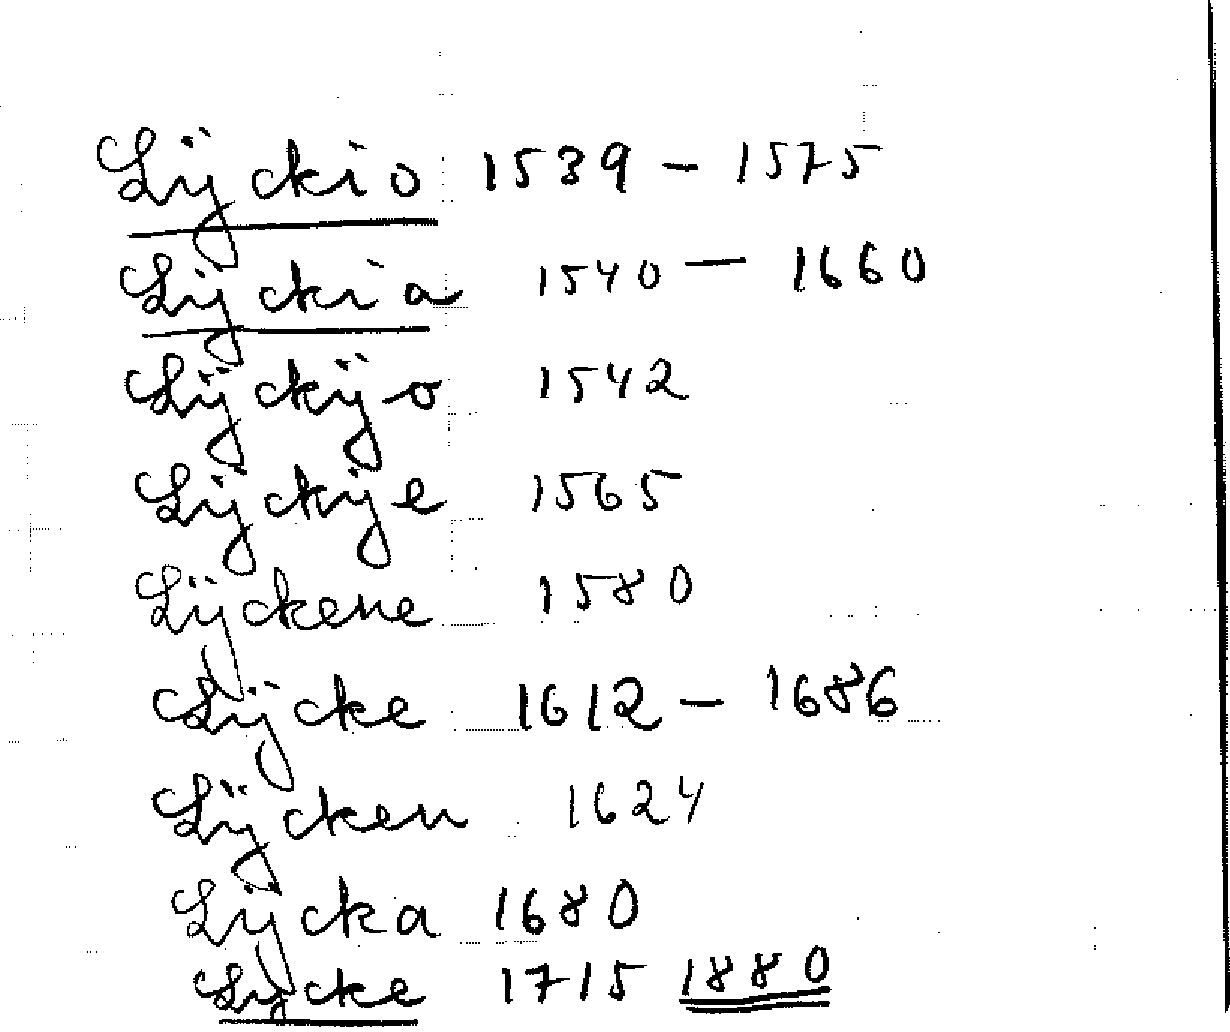 Lÿckio 1539 - 1575
Lÿckia 1540 - 1660
Lÿckÿo 1542
Lÿckÿe 1565
Lÿckene 1580
Lÿcke 1612 - 1686
Lÿcken 1624
Lÿcka 1680
Lycke 1715 1880